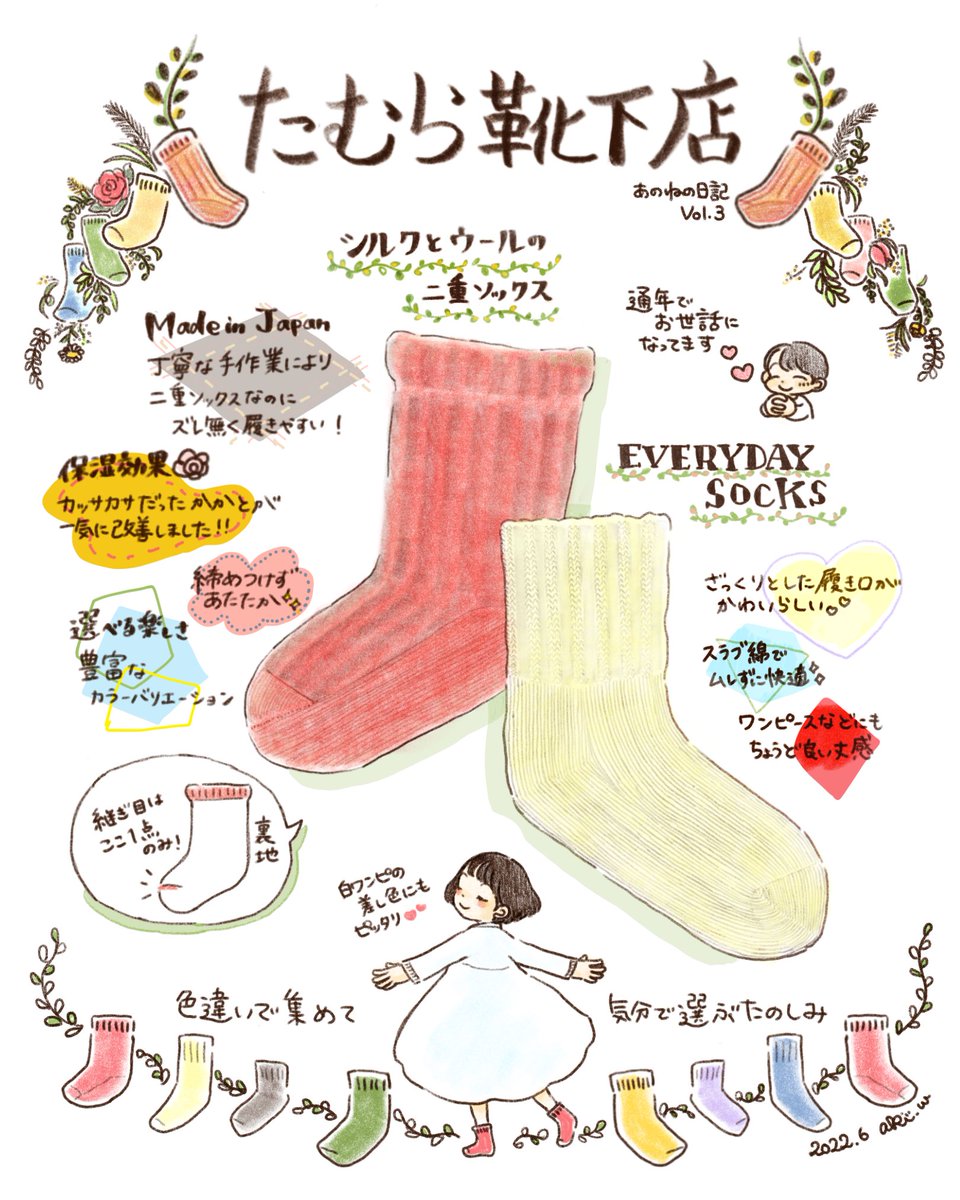 たむら靴下店
あのねの日記
Vol.3
シルクとウールの
二重ソックス
Made in Japan
丁寧な手作業により
二重ソックスなのに
ズレ無く履きやすい！
通年で
お世話に
なってます
保湿効果
カッサカサだったかかとが
一気に改善しました!!
締めつけず
あたたか
選べる楽しさ
豊富な
カラーバリエーション
EVERYDAY
SOCKS
ざっくりとした履き口が
かわいらしい
スラブ綿で
ムレずに快適
ワンピースなどにも
ちょうど良い丈感
継ぎ目は
ここ1点
のみ！
裏地
白ワンピの
差し色にも
ピッタリ
色違いで集めて
気分で選ぶたのしみ
2022.6 akii.w